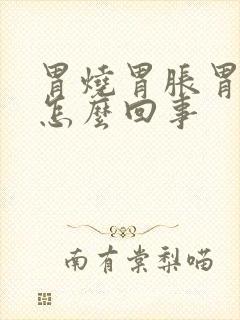 胃燒胃脹胃
怎麼回事
南有棠梨喵